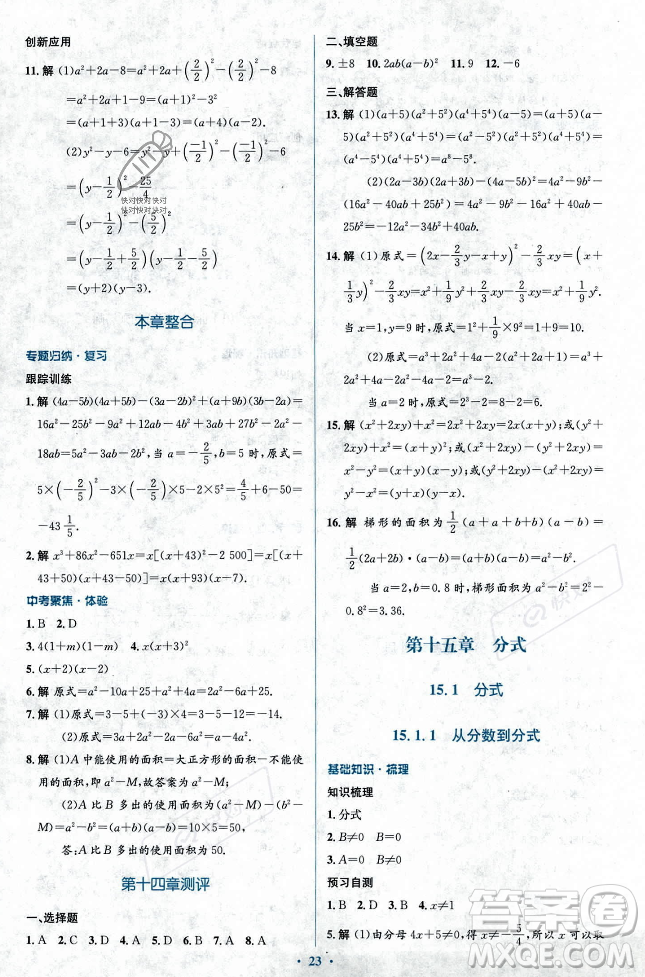 创新应用
11. 解 (1)a²+2a-8=a²+2a+(2/2)²-(2/2)²-8
=a²+2a+1-9=(a+1)²-3²
=(a+1+3)(a+1-3)=(a+4)(a-2).
(2)y²-y-6=y²-y+(-1/2)²-(-1/2)²-6
=(y-1/2)²-25/4
=(y-1/2+5/2)(y-1/2-5/2)
=(y+2)(y-3).
快对快对快对
快对快对快对
本章整合
专题归纳·复习
跟踪训练
1. 解 (4a-5b)(4a+5b)-(3a-2b)²+(a+9b)(3b-2a)=
16a²-25b²-9a²+12ab-4b²+3ab-2a²+27b²-
18ab=5a²-3ab-2b²,当 a=-2/5,b=5 时,原式=
5×(-2/5)²-3×(-2/5)×5-2×5²=4/5+6-50=
-43 1/5.
2. 解 x³+86x²-651x=x[(x+43)²-2 500]=x(x+
43+50)(x+43-50)=x(x+93)(x-7).
中考聚焦·体验
1. B 2. D
3. 4(1+m)(1-m) 4. x(x+3)²
5. (x+2)(x-2)
6. 解 原式=a²-10a+a²-1+10a=2a²-1.
7. 解 (1)原式=3-5+(-3)=-2-3=-5.
(2)原式=3a+2a²-3-2a²-2a+4=a+1.
8. 解 (1)A 中能使用的面积=大正方形的面积-不能
使用的面积,即 a²-M,故答案为 a²-M;
(2)A 比 B 多出的使用面积为(a²-M)-(b²-
M)=a²-b²=(a+b)(a-b)=10×5=50.
答:A 比 B 多出的使用面积为 50.
第十四章测评
一、选择题
1. A 2. C 3. D 4. C 5. B 6. A 7. B 8. A
二、填空题
9. ±8 10. 2ab(a-b)² 11. 9 12. -6
三、解答题
13. 解 (1)(a+5)(a+5)(a²+5²)(a⁴+5⁴)=(a²-
5²)(a²+5²)(a⁴+5⁴)=a⁸-5⁸.
(2)(2)(4a+5b)²-(4a-5b)²=
(16a²+40ab+25b²)-(16a²-40ab+25b²)=
16a²+40ab+25b²-16a²+40ab-25b²=40ab.
14. 解 (1)原式=(2x-2/3y-x+y)²-2/3xy=(x+
1/3y)²-2/3xy=x²+2/3xy+1/9y²-2/3xy=x²+1/9y².
当 x=1,y=9 时,原式=1²+1/9×9²=10.
(2)原式=a³+a²-a³+4a-2=a²+4a-2.
当 a=2 时,原式=8.
15. 解 (x²+2xy)+x²=2x²+2xy=2x(x+y);或(y²+
2xy)+x²=(x+y)²;或(x²+2xy)-(y²+
2xy)=x²-y²=(x+y)(x-y);或(y²+2xy)-
(x²+2xy)=y²-x²=(y+x)(y-x).
16. 解 梯形的面积为1/2(a+a+b+b)(a-b)=
1/2(2a+2b)·(a-b)=(a+b)(a-b)=a²-b².
当 a=2,b=0.8 时,梯形面积 a²-b²=
2²-0.8²=3.36.
第十五章 分式
15.1 分式
15.1.1 从分数到分式
基础知识·梳理
知识梳理
1. 分式
2. B≠0 B=0
3. A=0 B≠0
预习自测
1. B 2. D 3. 1 4. D
5. 解 (1)由分母 4x+5≠0,得 x≠-5/4,所以 x≠
答案圈
23